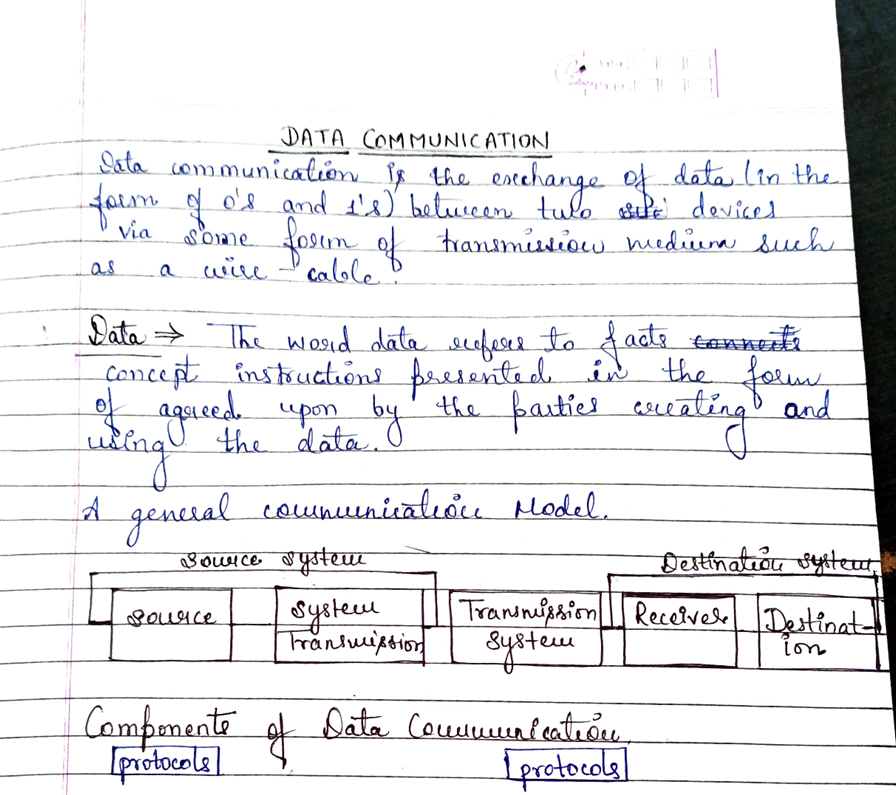 DATA COMMUNICATION
Data communication is the exchange of data (in the
form of 0's and 1's) between two devices
via some form of transmission medium such
as a wire cable.
Data ⇒ The word data refers to facts
concept instructions presented in the form
of agreed upon by the parties creating and
using the data.
A general communication Model.
Source system Destination system
Source System Transmission Transmission system Receiver Destinat-ion
Components of Data Communication
protocols protocols